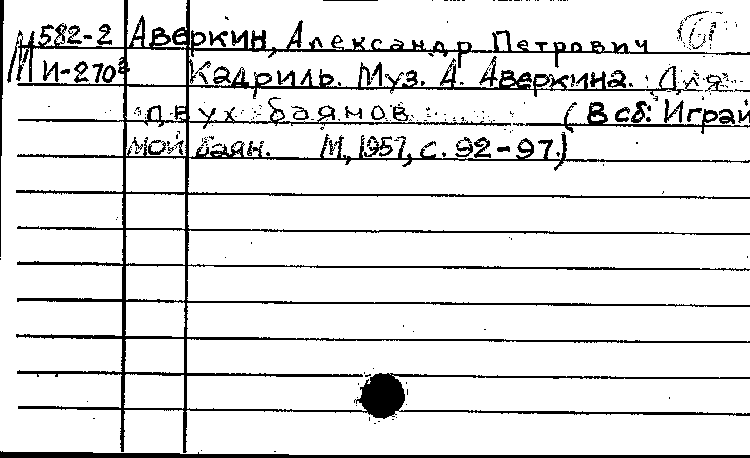 М 582-2 Аверкин, Александр Петрович 61
И-270² Кадриль. Муз. А. Аверкина. Для
двух баянов (В сб: Играй
мой баян. М., 1957, с. 92-97.)